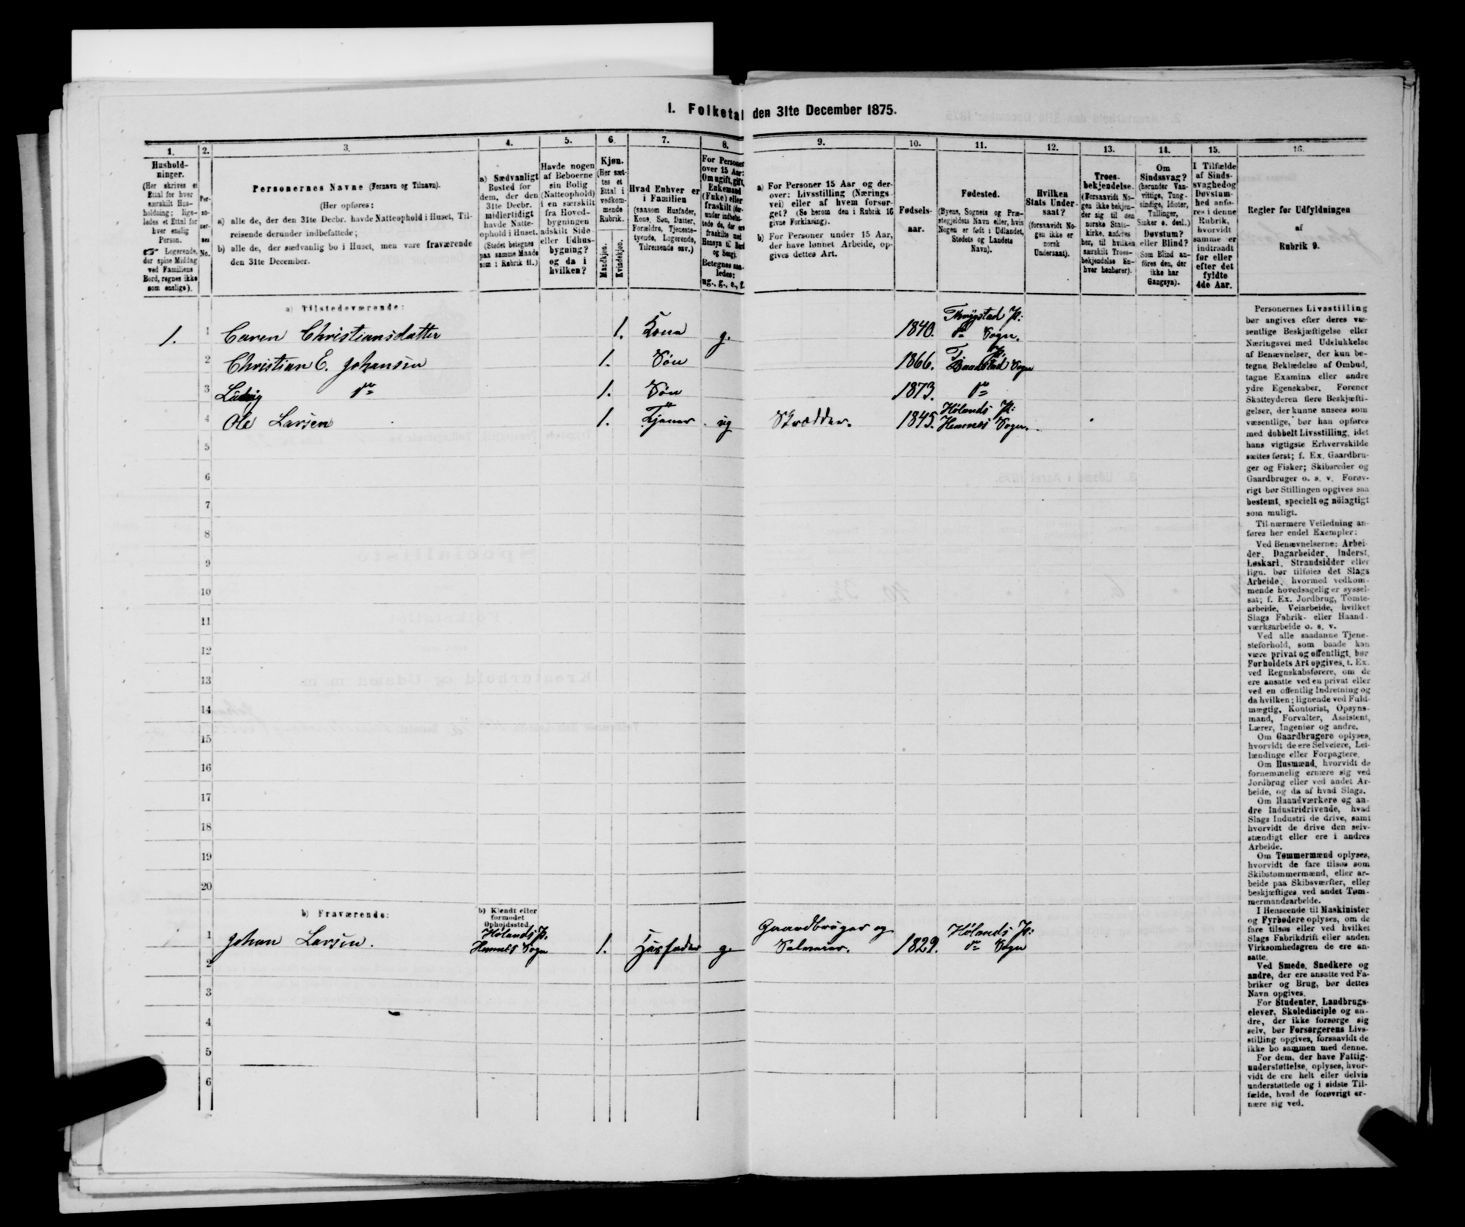 I. Folketal den 31te December 1875.
1.
2.
3.
4.
5.
6.
7.
8.
9.
10.
11.
12.
13.
14.
15.
16.
Hushold-
ninger.
(Her skrives et
Ettal for hver
særskilt Hus-
holdning; lige-
ledes et Ettal for
hver enslig
Person.
☞ Logerende,
der spise Middag
ved Familiens
Bord, regnes ikke
som enslige).
Per-
so-
ner-
nes
No.
Personernes Navne (Fornavn og Tilnavn).
(Her opføres:
a) alle de, der den 31te Decbr. havde Natteophold i Huset, Til-
reisende derunder indbefattede;
b) alle de, der sædvanlig bo i Huset, men vare fraværende
den 31te December.
a) Sædvanligt
Bosted for
dem, der den
31te Decbr.
midlertidigt
havde Natte-
ophold i Huset.
(Stedet betegnes
paa samme Maade
som i Rubrik 11.)
Havde nogen
af Beboerne
sin Bolig
(Natteophold)
i en særskilt
fra Hoved-
bygningen
adskilt Side-
eller Udhus-
bygning?
og da i
hvilken?
Kjøn.
(Her sæt-
tes et
Ettal i
vedkom-
mende
Rubrik.)
Mandkjøn.
Kvindekjøn.
Hvad Enhver er
i Familien
(saasom Husfader,
Kone, Søn, Datter,
Forældre, Tjeneste-
tyende, Logerende,
Tilreisende osv.)
For Personer
over 15 Aar:
Om ugift, gift,
Enkemand
(Enke) eller
fraskilt
Betegnes saa-
ledes:
ug., g., e., f.
a) For Personer 15 Aar og der-
over: Livsstilling (Nærings-
vei) eller af hvem forsør-
get? (Se herom den i Rubrik 16
givne Forklaring).
b) For Personer under 15 Aar,
der have lønnet Arbeide, op-
gives dettes Art.
Fødsels-
aar.
Fødested.
(Byens, Sognets og Præ-
stegjeldets Navn eller, hvis
Nogen er født i Udlandet,
Stedets og Landets
Navn).
Hvilken
Stats Under-
saat?
(forsaavidt No-
gen ikke er
norsk
Undersaat).
Troes-
bekjendelse.
(Forsaavidt No-
gen ikke bekjen-
der sig til den
norske Stats-
kirke, anføres
her, til hvilken
særskilt Troes-
bekjendelse En-
hver henhører).
Om
Sindssvag?
(herunder Van-
vittige, Tung-
sindige, Idioter,
Tullinger,
Sinker o. desl.)
Døvstum?
eller Blind?
Som Blind an-
føres den, der
ikke har
Gangsyn).
I Tilfælde
af Sinds-
svaghed og
Døvstum-
hed anfø-
res i denne
Rubrik,
hvorvidt
samme er
indtraadt
før eller
efter det
fyldte
4de Aar.
Regler for Udfyldningen
af
Rubrik 9.
a) Tilstedeværende:
1. 1 Caren Christiansdatter 1. Kona g. 1840. Thrygstad Pr: do Sogn.
2 Christian E. Johansen 1. Søn 1866. Sogn
3 Ludvig do 1. Søn 1873. do
4 Ole Larsen 1. Tjener ug Skrædder. 1845. Hølands Pr: Hemnes Sogn.
5
6
7
8
9
10
11
12
13
14
15
16
17
18
19
20
b) Fraværende:
b) Kjendt eller
formodet
Opholdssted.
1 Johan Larsen. Hølands Pr. Hemnes Sogn 1. Husfader g. Gaardbruger og Selveier. 1829. Hølands Pr: do Sogn
2
3
4
5
6
Personernes Livsstilling
bør angives efter deres væ-
sentlige Beskjæftigelse eller
Næringsvei med Udelukkelse
af Benævnelser, der kun be-
tegne Beklædelse af Ombud,
tagne Examina eller andre
ydre Egenskaber. Forener
Skatteyderen flere Beskjæfti-
gelser, der kunne ansees som
væsentlige, bør han opføres
med dobbelt Livsstilling, idet
hans vigtigste Erhvervskilde
sættes først; f. Ex. Gaardbru-
ger og Fisker; Skibsreder og
Gaardbruger o. s. v. Forøv-
rigt bør Stillingen opgives saa
bestemt, specielt og nøiagtigt
som muligt.
Til nærmere Veiledning an-
føres her endel Exempler:
Ved Benævnelserne: Arbei-
der, Dagarbeider, Inderst,
Løskarl, Strandsidder eller
lign. bør tilføies det Slags
Arbeide, hvormed vedkom-
mende hovedsagelig er syssel-
sat; f. Ex. Jordbrug, Tomte-
arbeide, Veiarbeide, hvilket
Slags Fabrik- eller Haand-
værksarbeide o. s. v.
Ved alle saadanne Tjene-
steforhold, som baade kan
være privat og offentligt, bør
Forholdets Art opgives, t. Ex.
ved Regnskabsførere, om de
ere ansatte ved en privat eller
ved en offentlig Indretning og
da hvilken; lignende ved Fuld-
mægtig, Kontorist, Opsyns-
mand, Forvalter, Assistent,
Lærer, Ingeniør og andre.
Om Gaardbrugere oplyses,
hvorvidt de ere Selveiere, Lei-
lændinge eller Forpagtere.
Om Husmænd, hvorvidt de
fornemmelig ernære sig ved
Jordbrug eller ved andet Ar-
beide, og da af hvad Slags.
Om Haandværkere og an-
dre Industridrivende, hvad
Slags Industri de drive, samt
hvorvidt de drive den selv-
stændigt eller ere i andres
Arbeide.
Om Tømmermænd oplyses,
hvorvidt de fare tilsøs som
Skibstømmermænd, eller ar-
beide paa Skibsværfter, eller
beskjæftiges ved andet Tøm-
mermandsarbeide.
I Henseende til Maskinister
og Fyrbødere oplyses, om de
fare tilsøs eller ved hvilket
Slags Fabrikdrift eller anden
Virksomhedsgren de ere an-
satte.
Ved Smede, Snedkere og
andre, der ere ansatte ved Fa-
briker og Brug, bør dettes
Navn opgives.
For Studenter, Landbrugs-
elever, Skoledisciple og an-
dre, der ikke forsørge sig
selv, bør Forsørgerens Livs-
stilling opgives, forsaavidt de
ikke bo sammen med denne.
For dem, der have Fattig-
understøttelse, oplyses, hvor-
vidt de ere helt eller delvis
understøttede og i sidste Til-
fælde, hvad de forøvrigt er-
nære sig ved.